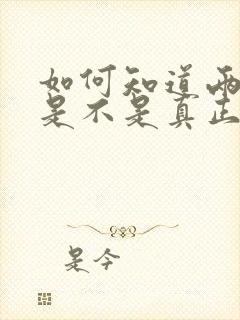 如何知道两
是不是真正
是今